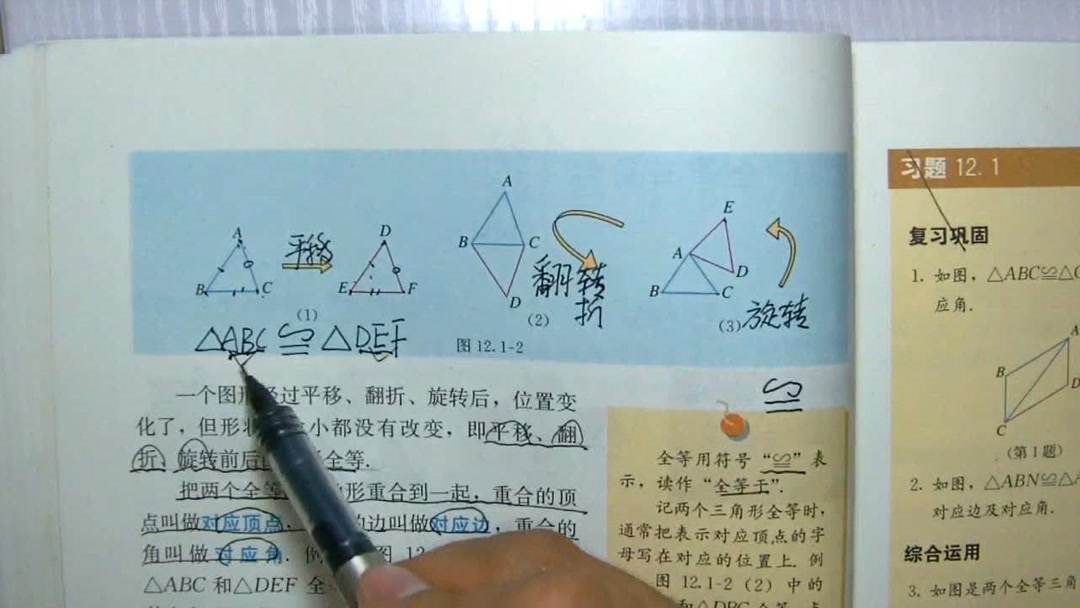 A
D
平移
B
C
E
F
(1)
△ABC≌△DEF
A
B
C
D
翻转
折
(2)
图 12.1-2
E
A
D
B
C
(3)
旋转
一个图形经过平移、翻折、旋转后，位置变
化了，但形状、大小都没有改变，即平移、翻
折、旋转前后的图形全等.
把两个全等的三角形重合到一起，重合的顶
点叫做对应顶点，重合的边叫做对应边，重合的
角叫做对应角. 例如，图 12.
△ABC 和△DEF 全
≌
全等用符号“≌”表
示，读作“全等于”.
记两个三角形全等时，
通常把表示对应顶点的字
母写在对应的位置上. 例
图 12.1-2 (2) 中的
和△DBC 全等，点
习题 12.1
复习巩固
1. 如图，△ABC≌△C
应角.
A
B
D
C
(第 1 题)
2. 如图，△ABN≌△A
对应边及对应角.
综合运用
3. 如图是两个全等三角